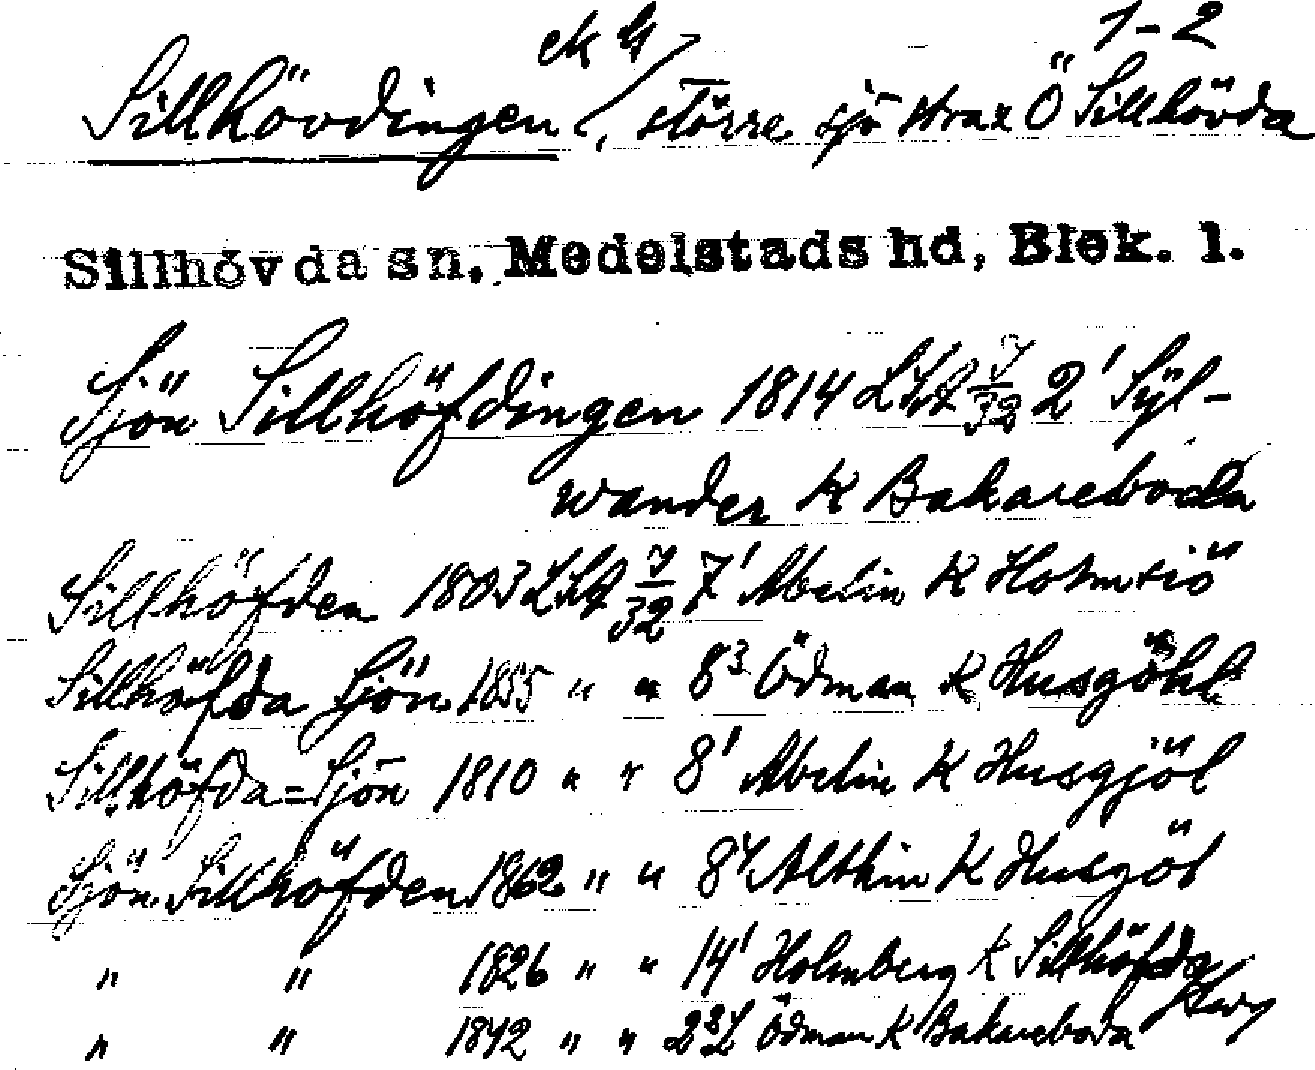 ek 4 1-2
Sillhövdingen, större sjö strax Ö Sillhövda
Sillhövda sn. Medelstads hd, Blek. l.
Sjön Sillhöfdingen 1814 LSA 7/32 2¹ Syl-
wander K Bakareboda
Sillhöfden 1803 LSA 7/32 7¹ Abelin K Holmsiö
Sillhöfda Sjön 1855 " " 8³ Ödman K Husgöhl
Sillhöfda=Sjön 1810 " " 8¹ Abelin K Husgjöl
Sjön Sillhöfden 1862 " " 8 Althin K Husgöl
" " 1826 " " 14¹ Holmberg K Sillhöfda
" " 1842 " " 2 Ödman K Bakareboda